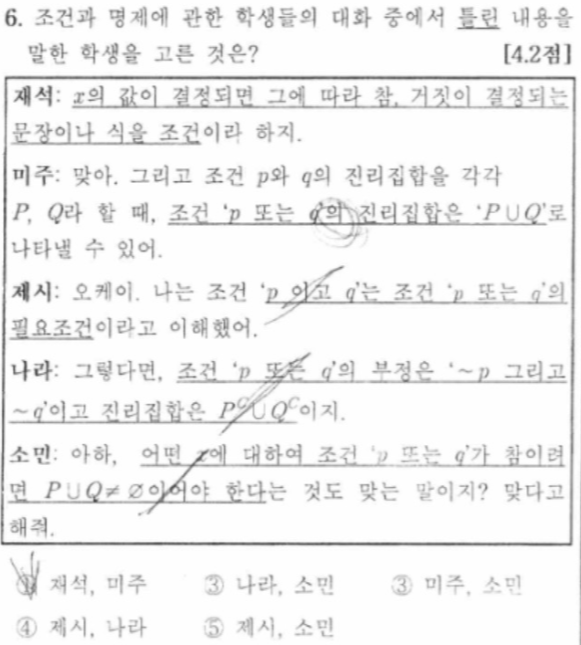 6. 조건과 명제에 관한 학생들의 대화 중에서 틀린 내용을
말한 학생을 고른 것은? [4.2점]
재석: x의 값이 결정되면 그에 따라 참, 거짓이 결정되는
문장이나 식을 조건이라 하지.
미주: 맞아. 그리고 조건 p와 q의 진리집합을 각각
P, Q라 할 때, 조건 'p 또는 q'의 진리집합은 'P∪Q'로
나타낼 수 있어.
제시: 오케이. 나는 조건 'p 이고 q'는 조건 'p 또는 q'의
필요조건이라고 이해했어.
나라: 그렇다면, 조건 'p 또는 q'의 부정은 '~p 그리고
~q'이고 진리집합은 P^C∪Q^C이지.
소민: 아하, 어떤 x에 대하여 조건 'p 또는 q'가 참이려
면 P∪Q≠∅이어야 한다는 것도 맞는 말이지? 맞다고
해줘.
① 재석, 미주 ③ 나라, 소민 ③ 미주, 소민
④ 제시, 나라 ⑤ 제시, 소민